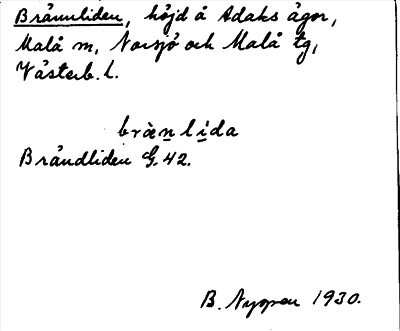 Brännliden, höjd å Adaks ägor,
Malå sn, Norsjö och Malå tg,
Västerb. l.
bræ̀nlída
Brändliden G. 42.
B. 1930.